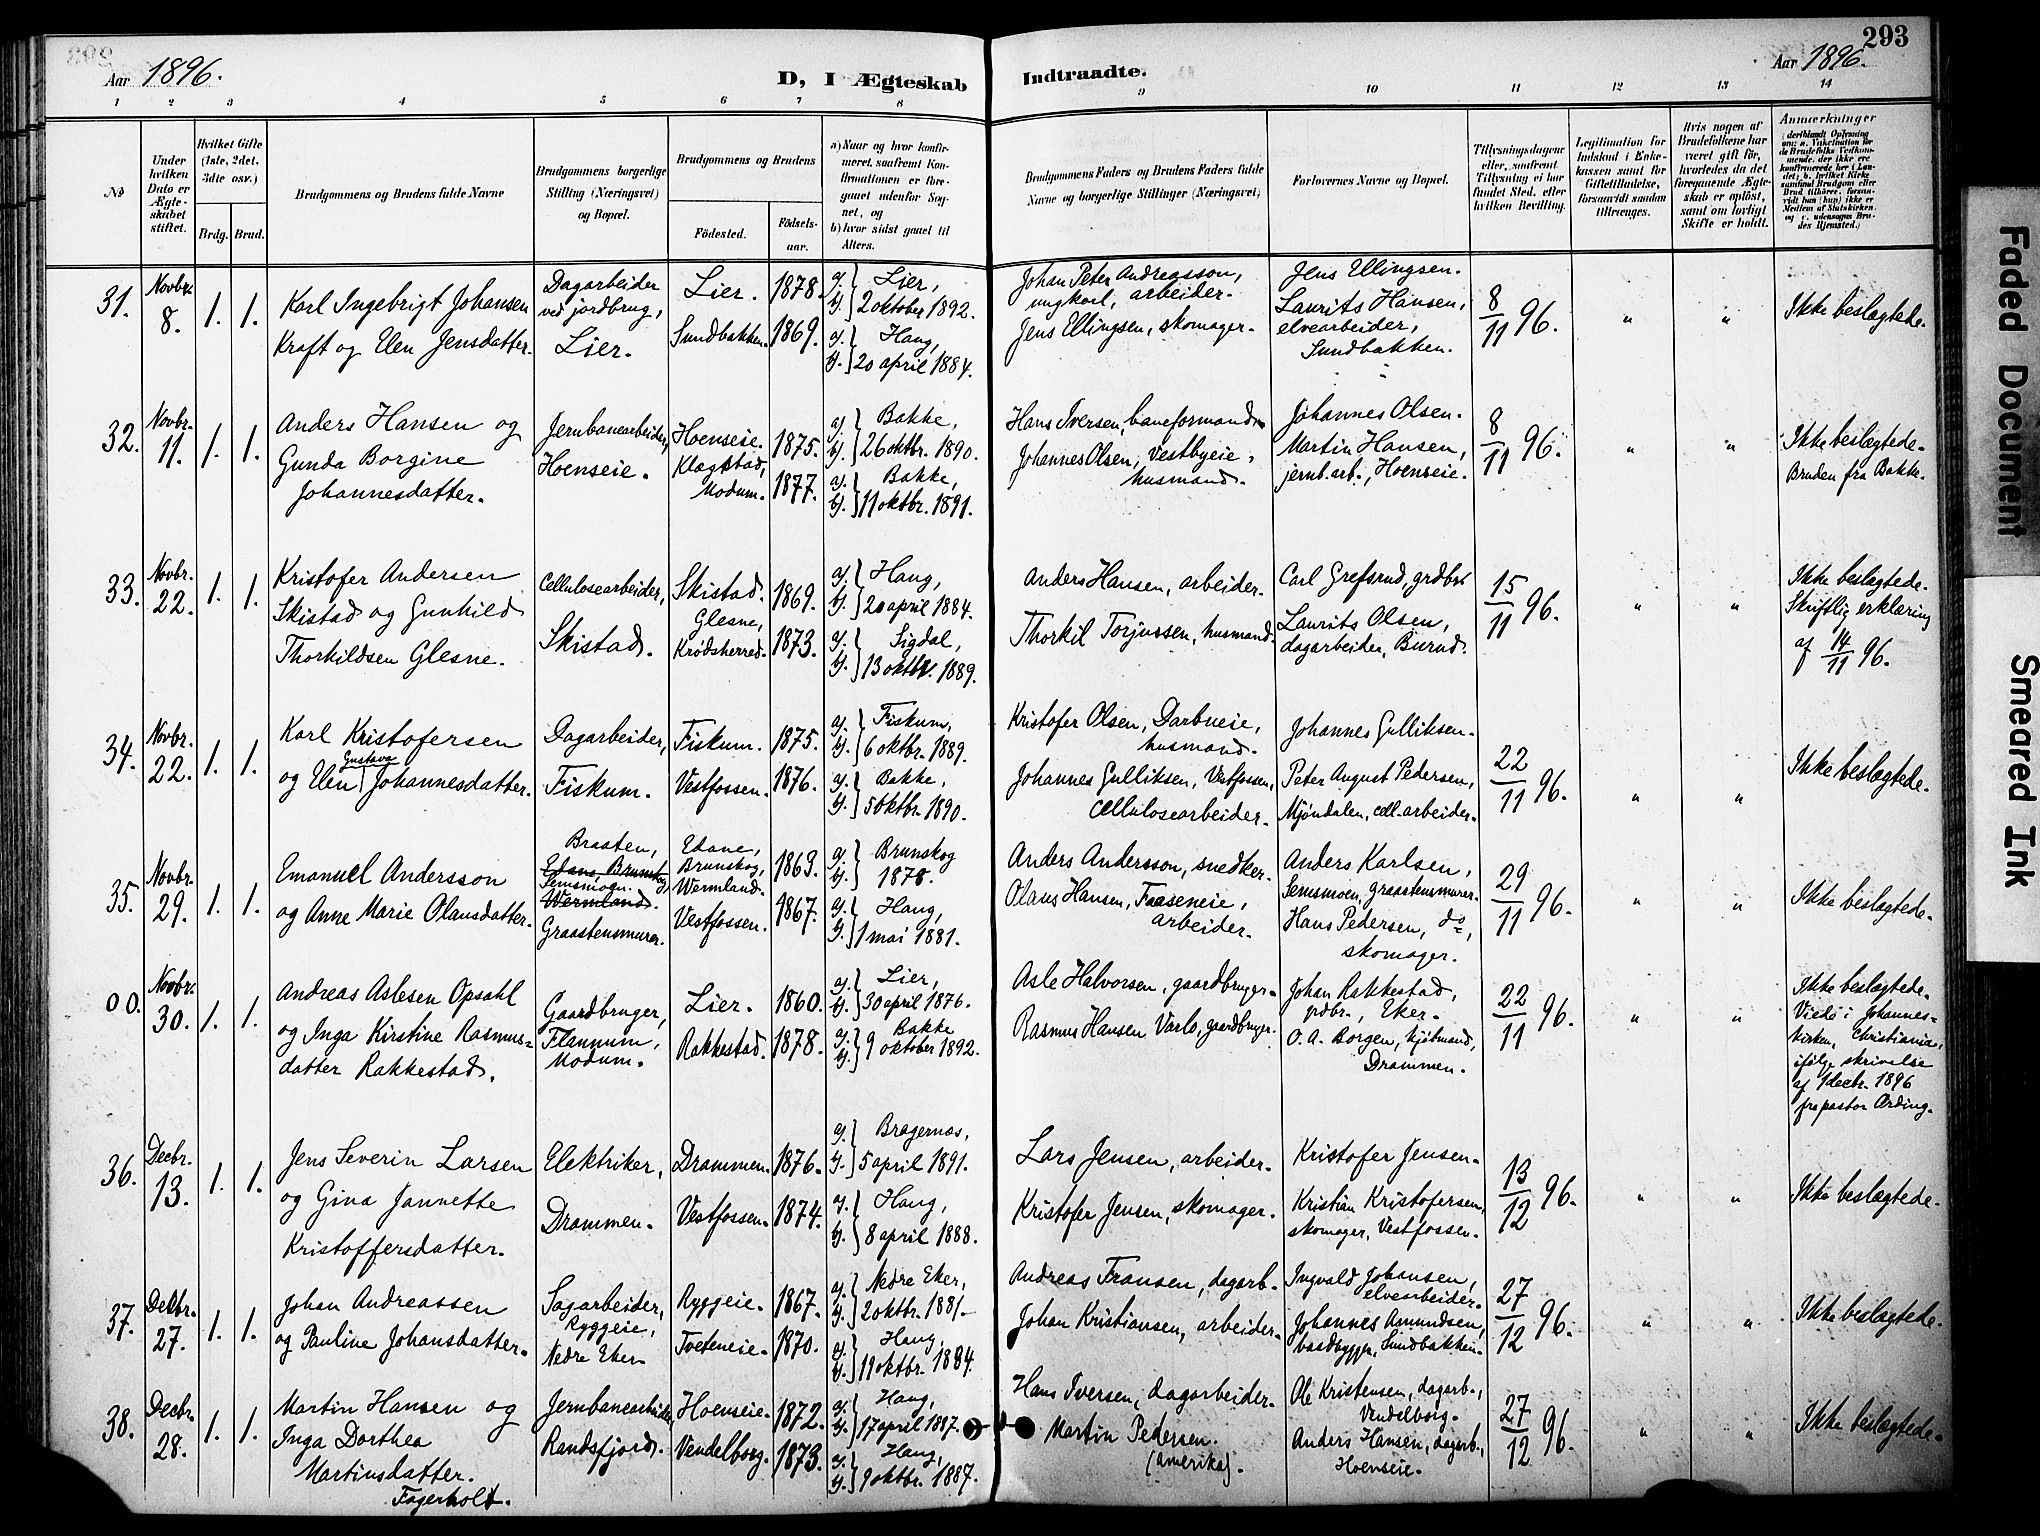 293
Aar 1896.
D, I Ægteskab Indtraadte.
Aar 1896.
1 2 3 4 5 6 7 8 9 10 11 12 13 14
No
Under hvilken Dato er Ægteskabet stiftet.
Hvilket Gifte (1ste, 2det, 3die osv.)
Brdg. Brud.
Brudgommens og Brudens fulde Navne
Brudgommens borgerlige Stilling (Næringsvei) og Bopæl.
Brudgommens og Brudens
Fødested.
Fødselsaar.
a) Naar og hvor konfirmeret, saafremt Konfirmationen er foregaaet udenfor Sognet, og
b) hvor sidst gaaet til Alters.
Brudgommens Faders og Brudens Faders fulde Navne og borgerlige Stillinger (Næringsvei)
Forlovernes Navne og Bopæl.
Tillysningsdagene eller, saafremt Tillysning ei har fundet Sted, efter hvilken Bevilling.
Legitimation for Indskud i Enkekassen samt for Giftetilladelse, forsaavidt saadan tiltrænges.
Hvis nogen af Brudefolkene har været gift før, hvorledes da det foregaaende Ægteskab er opløst, samt om lovligt Skifte er holdt.
Anmærkninger
31. Novbr. 8. 1. 1.
Karl Ingebrigt Johansen
Kraft og Elen Jensdatter.
Dagarbeider
ved jordbrug,
Lier.
Lier. 1878.
Sundbakken. 1869.
a). Lier,
b). 2 oktober 1892.
a). Haug,
b). 20 april 1884.
Johan Peter Andreasson,
ungkarl, arbeider.
Jens Ellingsen, skomager.
Jens Ellingsen.
Laurits Hansen,
elvearbeider,
Sundbakken.
8/11 96.
" "
Ikke beslægtede.
32. Novbr. 11. 1. 1.
Anders Hansen og
Gunda Borgine
Johannesdatter.
Jernbanearbeider,
Hoenseie.
Hoenseie. 1875.
Klagstad,
Modum. 1877.
a). Bakke,
b). 26 oktbr. 1890.
a). Bakke,
b). 11 oktbr. 1891.
Hans Iversen, baneformand
Johannes Olsen, Vestbyeie,
husmand.
Johannes Olsen.
Martin Hansen,
jernb.arb., Hoenseie.
8/11 96.
" "
Ikke beslægtede.
Bruden fra Bakke.
33. Novbr. 22. 1. 1.
Kristofer Andersen
Skistad og Gunhild
Thorkildsen Glesne.
Cellulosearbeider,
Skistad.
Skistad. 1869.
Glesne,
Krødsherred. 1873.
a). Haug,
b). 20 april 1884.
a). Sigdal,
b). 13 oktbr. 1889.
Anders Hansen, arbeider.
Thorkil Torjussen, husmand.
Carl Grefsrud, grdbr.
Laurits Olsen,
dagarbeider, Burud.
15/11 96.
" "
Ikke beslægtede.
Skriftlig erklæring
af 14/11 96.
34. Novbr. 22. 1. 1.
Karl Kristofersen
Gustava
og Elen Johannesdatter.
Dagarbeider,
Fiskum.
Fiskum. 1875.
Vestfossen. 1876.
a). Fiskum,
b). 6 oktbr. 1889.
a). Bakke,
b). 5 oktbr. 1890.
Kristofer Olsen, Darbueie,
husmand.
Johannes Gulliksen, Vestfossen,
cellulosearbeider.
Johannes Gulliksen.
Peter August Pedersen,
Mjøndalen, cell.arbeider.
22/11 96.
" "
Ikke beslægtede.
35. Novbr. 29. 1. 1.
Emanuel Andersson
og Anne Marie Olausdatter.
Braaten,
Edane, Brunskog,
Semsmoen.
Wermland.
Graastensmurer.
Edane,
Brunskog,
Wermland. 1863.
Vestfossen. 1867.
a). Brunskog
b). 1878.
a). Haug,
b). 1 mai 1881.
Anders Andersson, snedker.
Olaus Hansen, Faaseneie,
arbeider.
Anders Karlsen,
Semsmoen, graastensmurer.
Hans Pedersen, do,
skomager.
29/11 96.
" "
Ikke beslægtede.
00. Novbr. 30. 1. 1.
Andreas Aslesen Opsahl
og Inga Kirstine Rasmus=
datter Rakkestad.
Gaardbruger,
Flannum,
Modum.
Lier. 1860.
Rakkestad. 1878.
a). Lier,
b). 30 april 1876.
a). Bakke
b). 9 oktober 1892.
Asle Halvorsen, gaardbruger.
Rasmus Hansen Varlo, gaardbruger.
Johan Rakkestad,
grdbr., Eker.
O. A. Borgen, kjøbmand,
Drammen.
22/11 96.
" "
Ikke beslægtede.
Viede i Johannes=
kirken, Christiania,
ifølge skrivelse
af 1 decbr. 1896
fra pastor Ording.
36. Decbr. 13. 1. 1.
Jens Severin Larsen
og Gina Jannette
Kristoffersdatter.
Elektriker,
Drammen.
Drammen. 1876.
Vestfossen. 1874.
a). Bragernæs,
b). 5 april 1891.
a). Haug,
b). 8 april 1888.
Lars Jensen, arbeider.
Kristofer Jensen, skomager.
Kristofer Jensen.
Kristian Kristofersen,
skomager, Vestfossen.
13/12 96.
" "
Ikke beslægtede.
37. Decbr. 27. 1. 1.
Johan Andreassen
og Pauline Johansdatter.
Sagarbeider,
Ryggeie,
Nedre Eker.
Ryggeie. 1867.
Tveteneie. 1870.
a). Nedre Eker,
b). 2 oktbr. 1881.
a). Haug,
b). 19 oktbr. 1884.
Andreas Fransen, dagarb.
Johan Kristiansen, arbeider.
Ingvald Johansen,
elvearbeider.
Johannes Amundsen,
baadbygger, Sundbakken.
27/12 96.
" "
Ikke beslægtede.
38. Decbr. 28. 1. 1.
Martin Hansen og
Inga Dorthea
Martinsdatter.
Fagerholt.
Jernbanearbeider,
Randsfjord.
Hoenseie. 1872.
Vendelborg. 1873.
a). Haug,
b). 17 april 1887.
a). Haug,
b). 9 oktbr. 1887.
Hans Iversen, dagarbeider.
Martin Pedersen.
(Amerika).
Ole Kristensen, dagarb.,
Vendelborg.
Anders Hansen, dagarb.,
Hoenseie.
27/12 96.
" "
Ikke beslægtede.
Faded Document
Smeared Ink